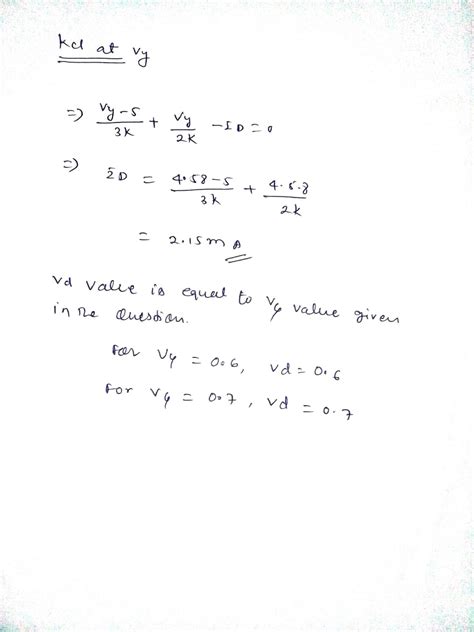 kcl at Vy
=> Vy-5/3K + Vy/2K - ID = 0
=> ID = 4.58-5/3K + 4.58/2K
= 2.15mA
Vd value is equal to Vy value given
in the Question.
For Vy = 0.6, Vd = 0.6
For Vy = 0.7, Vd = 0.7